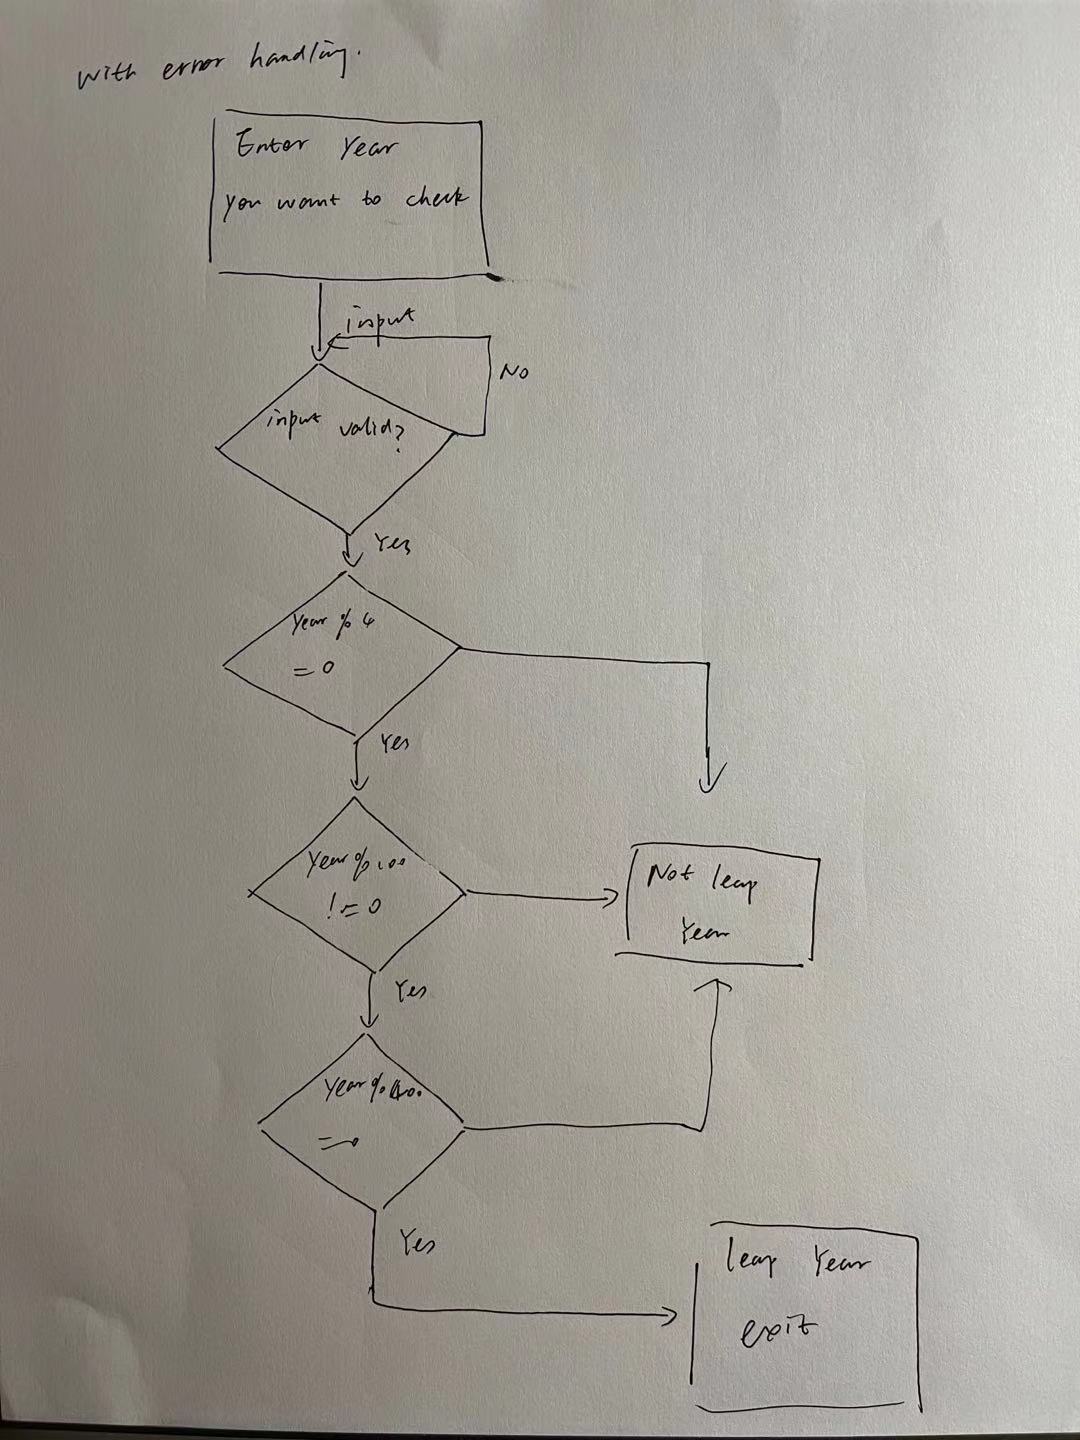 with error handling.
Enter Year
you want to check
input
No
input valid?
Yes
Year % 4
= 0
Yes
Year % 100
!= 0
Not leap
Year
Yes
Year % 400
= 0
Yes
leap Year
exit